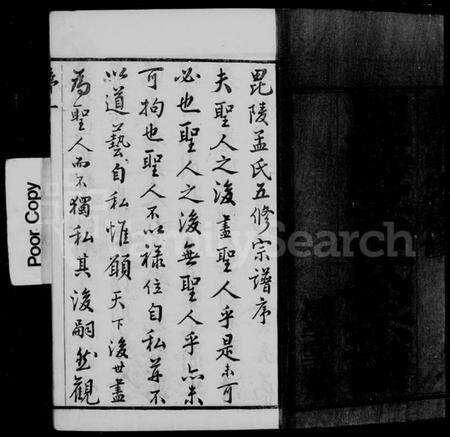 毘陵孟氏五修宗譜序
夫聖人之後盡聖人乎是未可
必也聖人之後無聖人乎亦未
可拘也聖人不以祿位自私并不
以道藝自私惟願天下後世盡
為聖人而不獨私其後嗣然觀
序 一
Poor Copy
FamilySearch